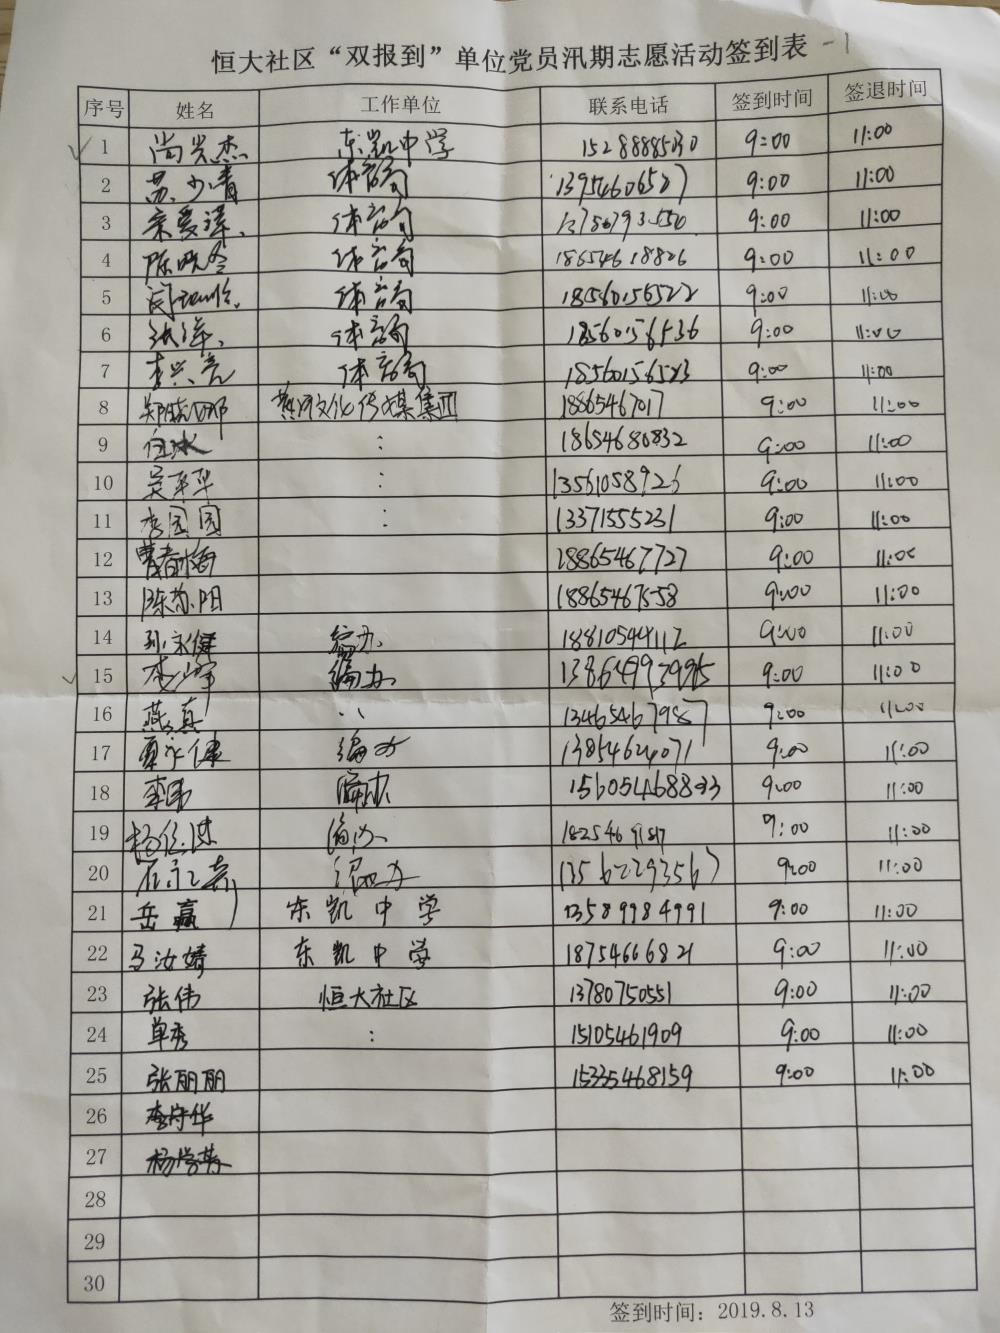 恒大社区“双报到”单位党员汛期志愿活动签到表 -1
序号 姓名 工作单位 联系电话 签到时间 签退时间
1 尚兴杰 东凯中学 15288885030 9:00 11:00
2 苏少青 体育局 13954606527 9:00 11:00
3 体育局 9:00 11:00
4 陈晓冬 体育局 18654618826 9:00 11:00
5 体育局 18560156522 9:00 11:00
6 体育局 18560156536 9:00 11:00
7 李兴亮 体育局 18560156523 9:00 11:00
8 黄河文化传媒集团 18865467017 9:00 11:00
9 白冰 : 18654680832 9:00 11:00
10 吴苹苹 : 13561058926 9:00 11:00
11 李园园 : 13371555231 9:00 11:00
12 曹春梅 18865467727 9:00 11:00
13 陈苏阳 18865467558 9:00 11:00
14 孙永健 编办 18810544112 9:00 11:00
15 编办 9:00 11:00
16 燕真 、、 13465467987 9:00 11:00
17 编办 13854624071 9:00 11:00
18 李勇 编办 9:00 11:00
19 编办 9:00 11:00
20 编办 13562293567 9:00 11:00
21 岳赢 东凯中学 13589984991 9:00 11:00
22 马汝婧 东凯中学 18754666821 9:00 11:00
23 张伟 恒大社区 13780750551 9:00 11:00
24 单秀 : 15105461909 9:00 11:00
25 张丽丽 15335468159 9:00 11:00
26 李守华
27
28
29
30
签到时间：2019.8.13